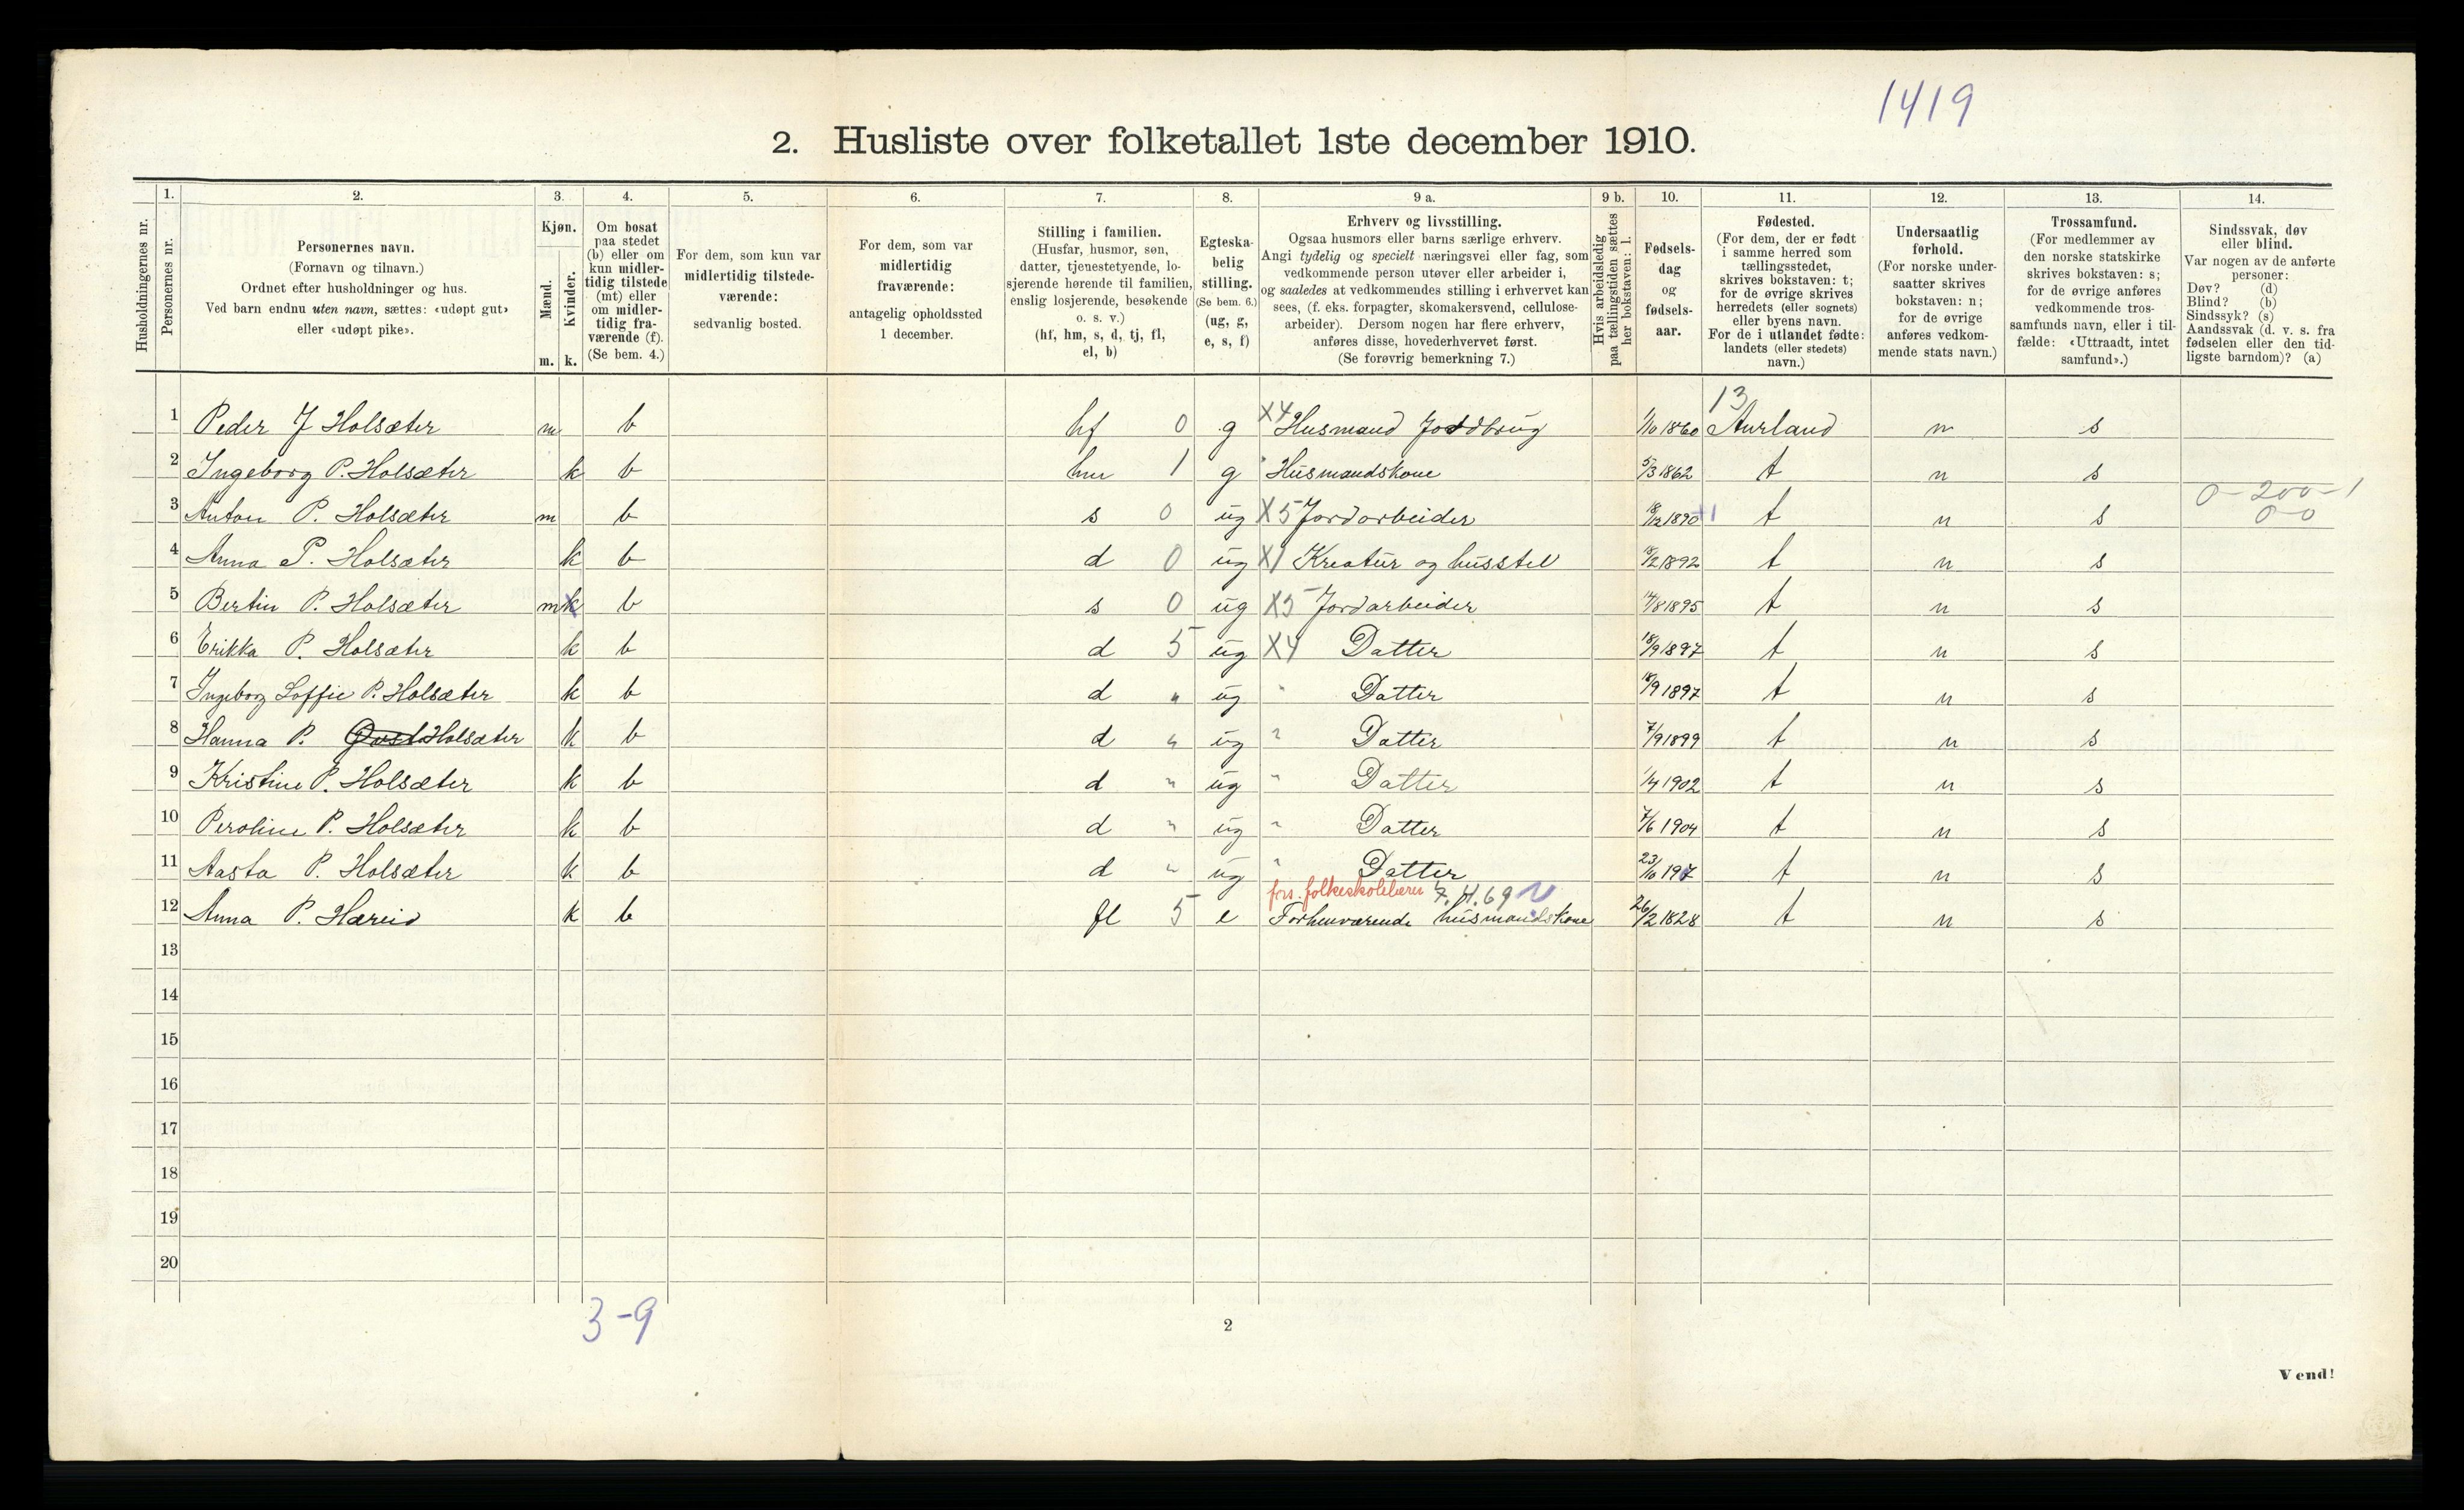 1419
2. Husliste over folketallet 1ste december 1910.
Husholdningernes nr.
1. Personernes nr.
2. Personernes navn.
(Fornavn og tilnavn.)
Ordnet efter husholdninger og hus.
Ved barn endnu uten navn, sættes: «udøpt gut»
eller «udøpt pike».
3. Kjøn.
Mænd. m.
Kvinder. k.
4. Om bosat
paa stedet
(b) eller om
kun midler-
tidig tilstede
(mt) eller
om midler-
tidig fra-
værende (f).
(Se bem. 4.)
5. For dem, som kun var
midlertidig tilstede-
værende:
sedvanlig bosted.
6. For dem, som var
midlertidig
fraværende:
antagelig opholdssted
1 december.
7. Stilling i familien.
(Husfar, husmor, søn,
datter, tjenestetyende, lo-
sjerende hørende til familien,
enslig losjerende, besøkende
o. s. v.)
(hf, hm, s, d, tj, fl,
el, b)
8. Egteska-
belig
stilling.
(Se bem. 6.)
(ug, g,
e, s, f)
9 a. Erhverv og livsstilling.
Ogsaa husmors eller barns særlige erhverv.
Angi tydelig og specielt næringsvei eller fag, som
vedkommende person utøver eller arbeider i,
og saaledes at vedkommendes stilling i erhvervet kan
sees, (f. eks. forpagter, skomakersvend, cellulose-
arbeider). Dersom nogen har flere erhverv,
anføres disse, hovederhvervet først.
(Se forøvrig bemerkning 7.)
9 b. Hvis arbeidsledig
paa tællingstiden sættes
her bokstaven: l.
10. Fødsels-
dag
og
fødsels-
aar.
11. Fødested.
(For dem, der er født
i samme herred som
tællingsstedet,
skrives bokstaven: t;
for de øvrige skrives
herredets (eller sognets)
eller byens navn.
For de i utlandet fødte:
landets (eller stedets)
navn.)
12. Undersaatlig
forhold.
(For norske under-
saatter skrives
bokstaven: n;
for de øvrige
anføres vedkom-
mende stats navn.)
13. Trossamfund.
(For medlemmer av
den norske statskirke
skrives bokstaven: s;
for de øvrige anføres
vedkommende tros-
samfunds navn, eller i til-
fælde: «Uttraadt, intet
samfund».)
14. Sindssvak, døv
eller blind.
Var nogen av de anførte
personer:
Døv? (d)
Blind? (b)
Sindssyk? (s)
Aandssvak (d. v. s. fra
fødselen eller den tid-
ligste barndom)? (a)
13
1 Peder J Holsæter m b hf 0 g X4 Husmand Jordbrug 1/10 1860 Aurland n s
2 Ingeborg P. Holsæter k b hm 1 g Husmandskone 5/3 1862 t n s
0-200-1
3 Anton P. Holsæter m b s 0 ug X5 Jordarbeider 18/12 1890 +1 t n s 0-0
4 Anna P. Holsæter k b d 0 ug X1 Kreatur og husstel 18/2 1892 t n s
5 Bertin P. Holsæter m k b s 0 ug X5 Jordarbeider 14/8 1895 t n s
6 Erikka P. Holsæter k b d 5 ug X4 Datter 18/9 1897 t n s
7 Ingeborg Soffie P. Holsæter k b d " ug " Datter 18/9 1897 t n s
8 Hanna P. Holsæter k b d " ug " Datter 7/9 1899 t n s
9 Kristine P. Holsæter k b d " ug " Datter 1/4 1902 t n s
10 Peroline P. Holsæter k b d " ug " Datter 7/6 1904 t n s
11 Aasta P. Holsæter k b d " ug " Datter 23/10 1907 t n s
fors. folkeskolelærer 7.4.69
12 Anna P. Hæreid k b fl 5 e Forhenværende husmandskone 26/2 1828 t n s
13
14
15
16
17
18
19
20
3-9
2
Vend!